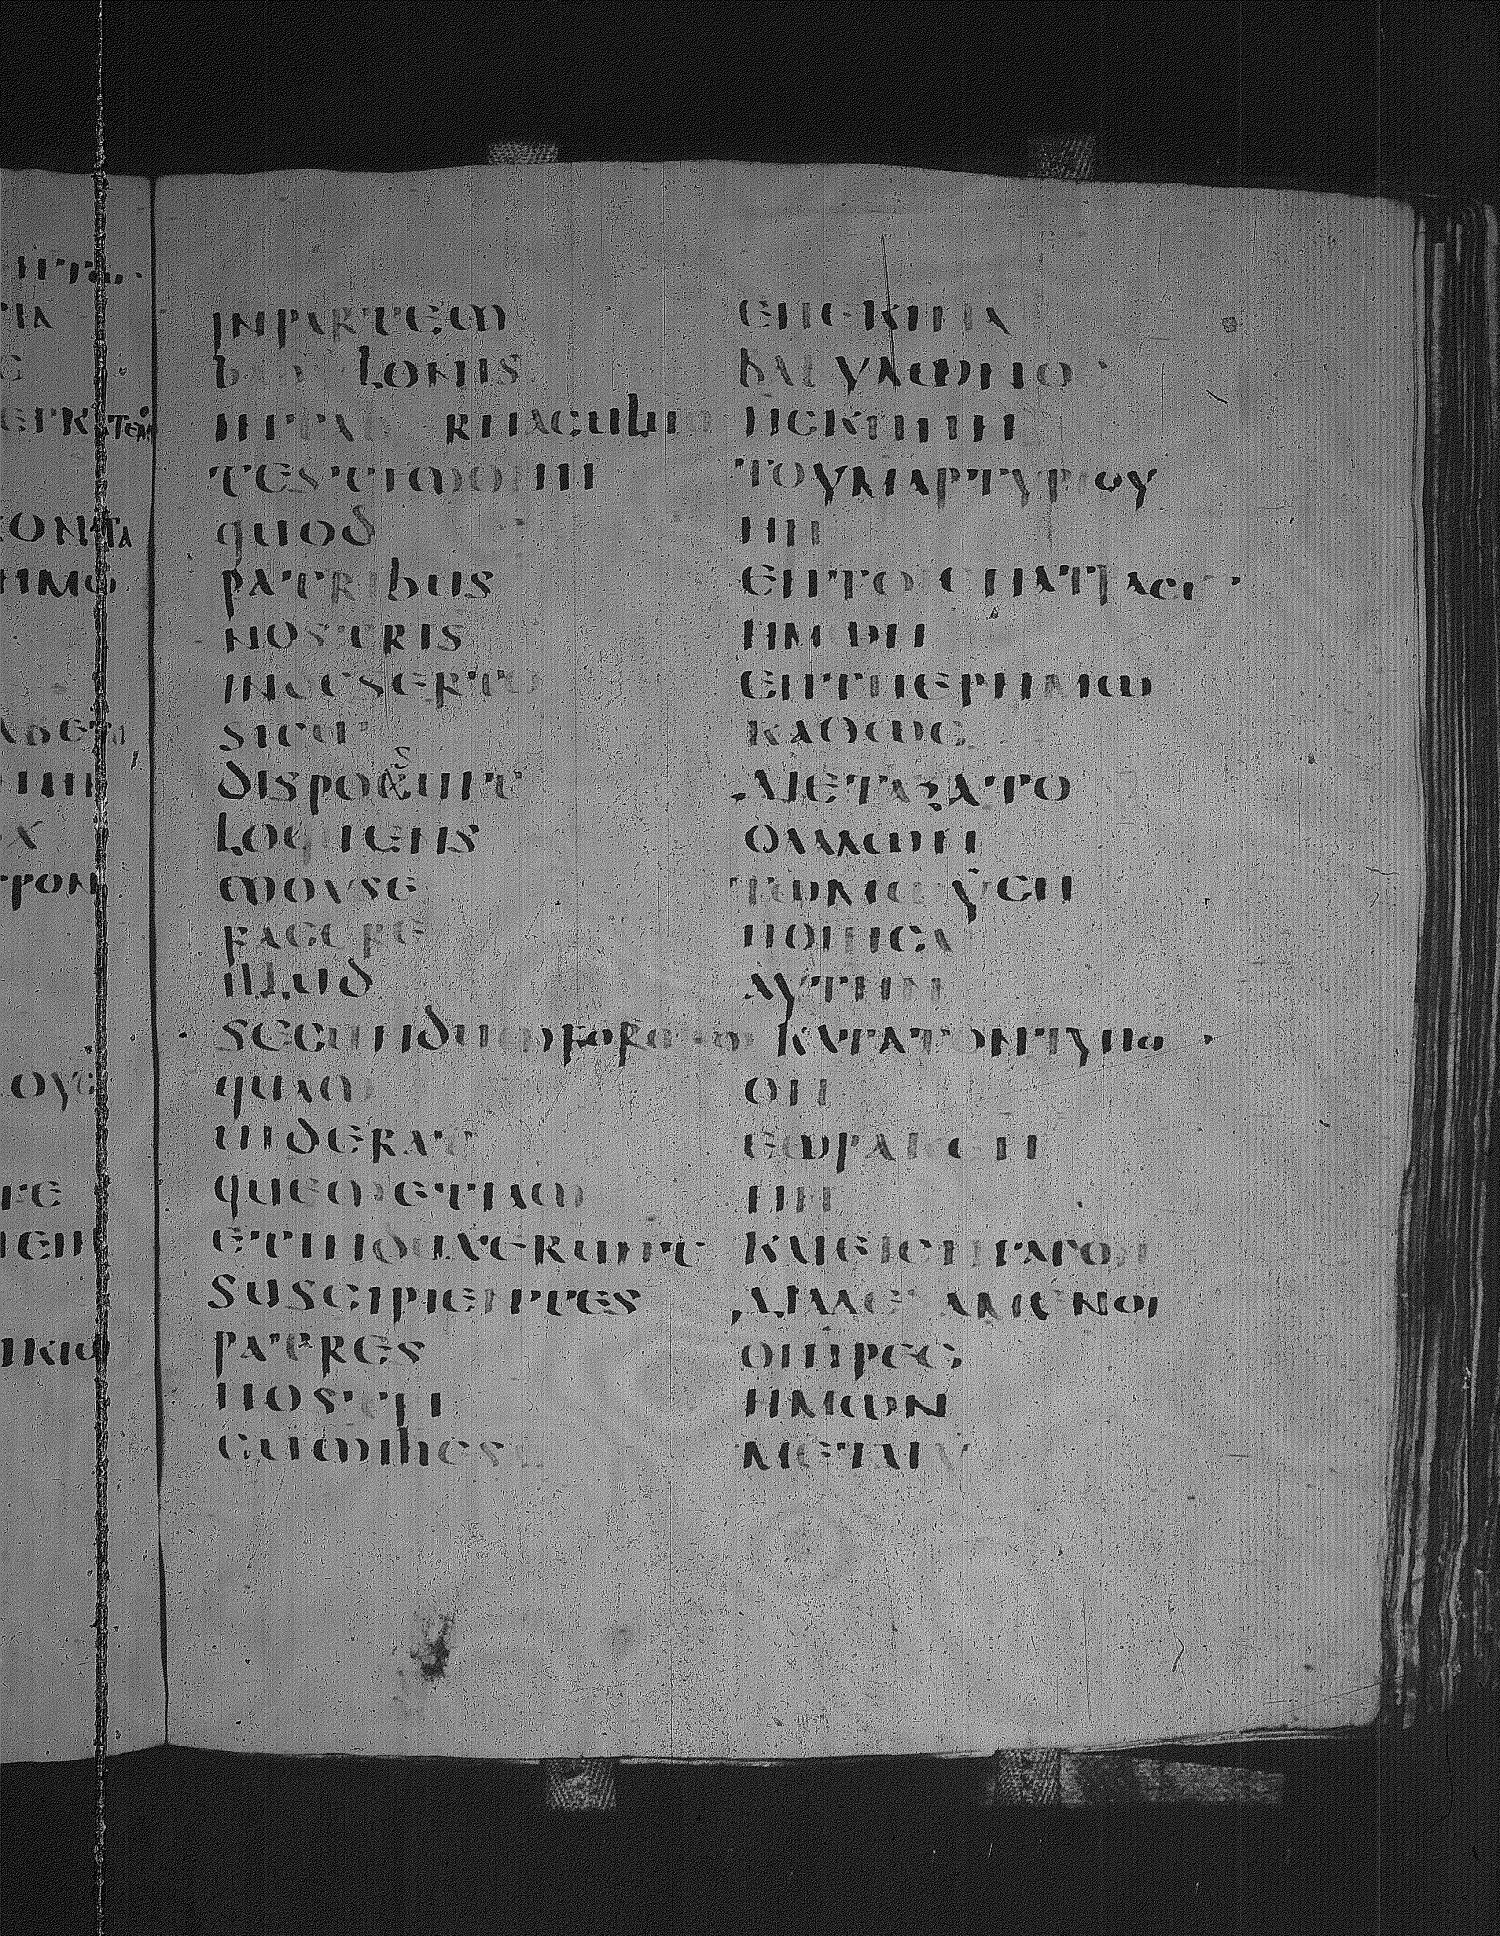 inpartem
babylonis
tabernaculum
testimonii
quod
patribus
nostris
indeserto
sicut
disposuit
loquens
moyse
facere
illud
secundumformam
quam
uiderat
quemetiam
etinduxerunt
suscipientes
patres
nostri
cumihesu
ΕΠΕΚΙΝΑ
ΒΑΒΥΛΩΝΟϹ
ΗϹΚΗΝΗ
ΤΟΥΜΑΡΤΥΡΙΟΥ
ΗΝ
ΕΝΤΟΙϹΠΑΤΡΑϹΙΝ
ΗΜΩΝ
ΕΝΤΗΕΡΗΜΩ
ΚΑΘΩϹ
ΔΙΕΤΑΞΑΤΟ
ΟΛΑΛΩΝ
ΤΩΜΩΥϹΕΙ
ΠΟΙΗϹΑΙ
ΑΥΤΗΝ
ΚΑΤΑΤΟΝΤΥΠΟΝ
ΟΝ
ΕΩΡΑΚΕΝ
ΗΝ
ΚΑΙΕΙϹΗΓΑΓΟΝ
ΔΙΑΔΕΞΑΜΕΝΟΙ
ΟΙΠΡΕϹ
ΗΜΩΝ
ΜΕΤΑΙΥ